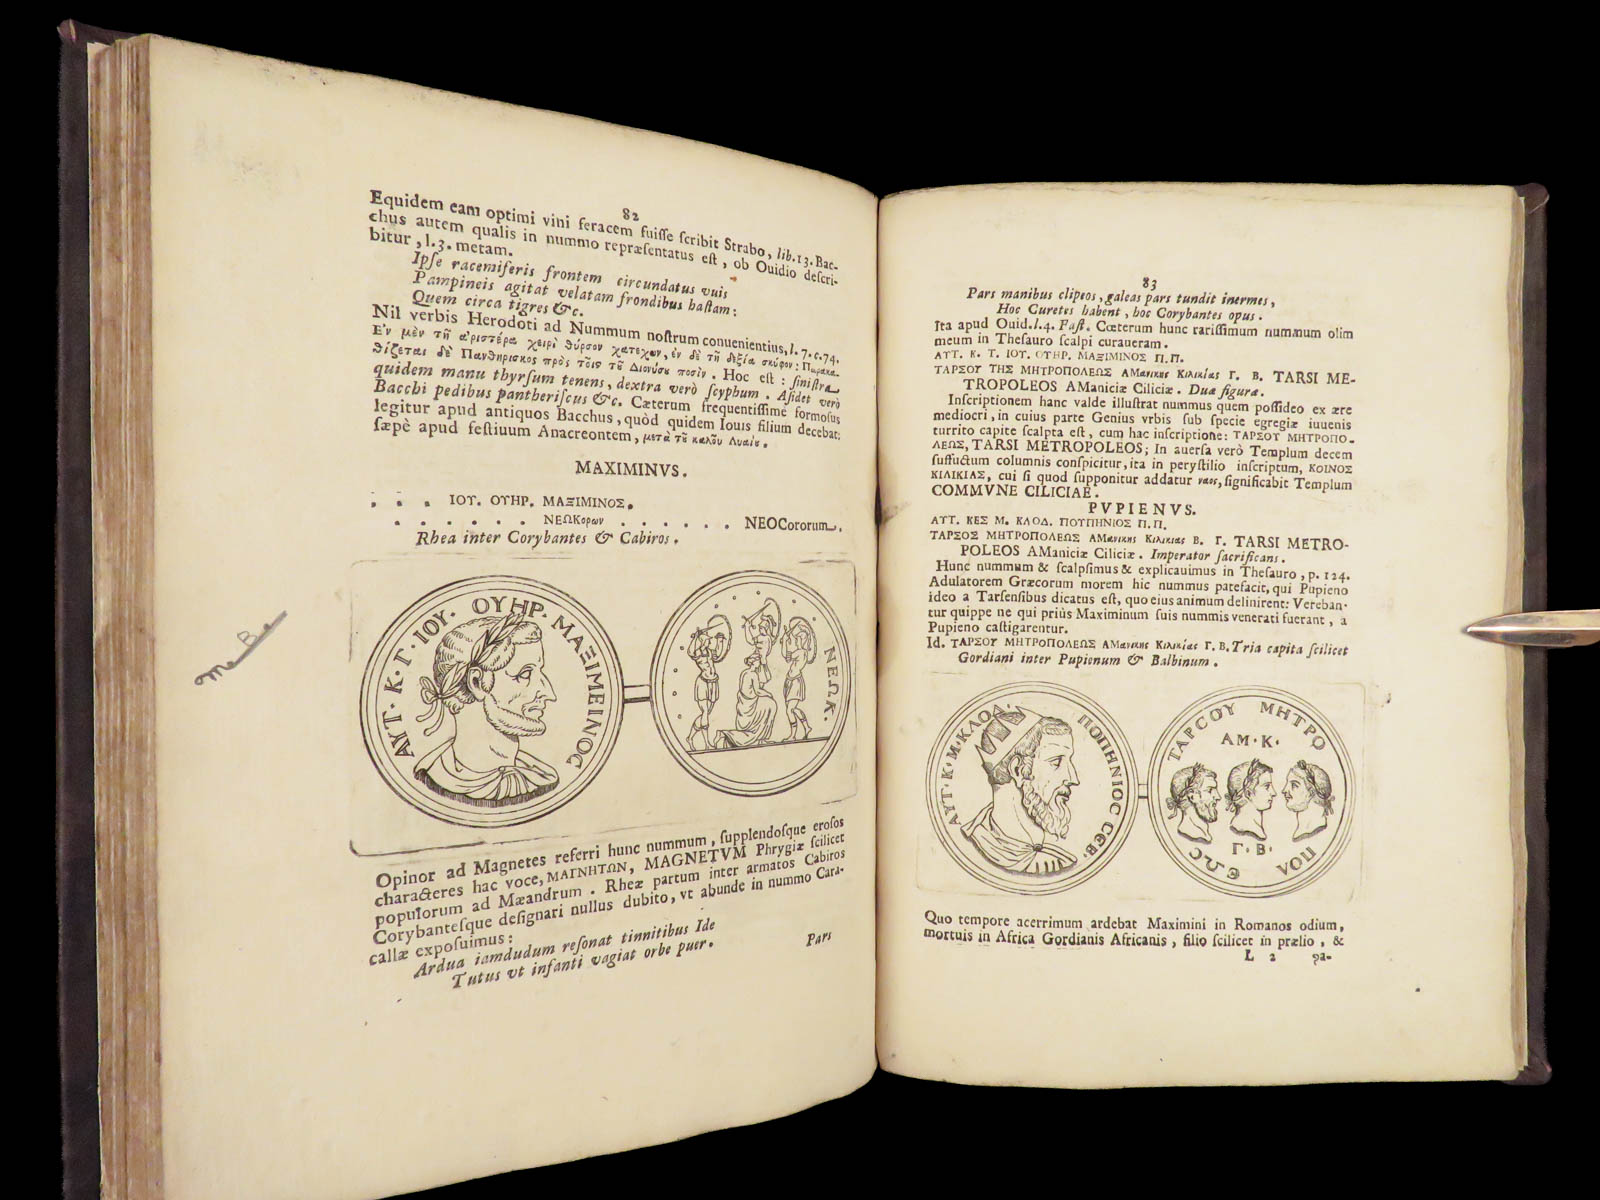 82
Equidem eam optimi vini feracem fuiſſe ſcribit Strabo, lib.13. Bac-
chus autem qualis in nummo repræſentatus eſt, ob Ouidio deſcri-
bitur, l.3. metam.
Ipſe racemiferis frontem circundatus vuis
Pampineis agitat velatam frondibus haſtam:
Quem circa tigres &c.
Nil verbis Herodoti ad Nummum noſtrum conuenientius, l. 7. c. 74.
Ἐν μὲν τῇ ἀριστέρᾳ χειρὶ θύρσον κατέχων, ἐν δὲ τῇ δεξίᾳ σκύφον: Παρακα-
θίζεται δὲ Πανθηρισκος πρὸς τοῖν τοῦ Διονύσου ποσίν. Hoc eſt: ſiniſtra
quidem manu thyrſum tenens, dextra verò ſcyphum. Aſidet verò
Bacchi pedibus pantheriſcus &c. Cæterum frequentiſſimè formoſus
legitur apud antiquos Bacchus, quòd quidem Iouis filium decebat:
ſæpè apud feſtiuum Anacreontem, μετὰ τοῦ καλοῦ Λυαίου.
MAXIMINVS.
. . . ΙΟΥ. ΟΥΗΡ. ΜΑΞΙΜΙΝΟΣ.
. . . . . . ΝΕΩΚορων . . . . . . NEOCororum.
Rhea inter Corybantes & Cabiros.
ΑΥΤ. Κ. Γ. ΙΟΥ. ΟΥΗΡ. ΜΑΞΙΜΕΙΝΟC
ΝΕΩΚ.
Opinor ad Magnetes referri hunc nummum, ſupplendoſque eroſos
characteres hac voce, ΜΑΓΝΗΤΩΝ, MAGNETVM Phrygiæ ſcilicet
populorum ad Mæandrum. Rheæ partum inter armatos Cabiros
Corybanteſque deſignari nullus dubito, vt abunde in nummo Cara-
callæ expoſuimus:
Ardua iamdudum reſonat tinnitibus Ide
Tutus vt infanti vagiat orbe puer.
Pars
83
Pars manibus clipeos, galeas pars tundit inermes,
Hoc Curetes habent, hoc Corybantes opus.
Ita apud Ouid. l.4. Faſt. Cœterum hunc rariſſimum nummum olim
meum in Theſauro ſcalpi curaueram.
ΑΥΤ. Κ. Τ. ΙΟΥ. ΟΥΗΡ. ΜΑΞΙΜΙΝΟΣ Π. Π.
ΤΑΡΣΟΥ ΤΗΣ ΜΗΤΡΟΠΟΛΕΩΣ ΑΜανικης Κιλικίας Γ. Β. TARSI ME-
TROPOLEOS AManiciæ Ciliciæ. Duæ figuræ.
Inſcriptionem hanc valde illuſtrat nummus quem poſſideo ex ære
mediocri, in cuius parte Genius vrbis ſub ſpecie egregiæ iuuenis
turrito capite ſcalpta eſt, cum hac inſcriptione: ΤΑΡΣΟΥ ΜΗΤΡΟΠΟ-
ΛΕΩΣ, TARSI METROPOLEOS; In auerſa verò Templum decem
ſuffuctum columnis conſpicitur, ita in peryſtilio inſcriptum, ΚΟΙΝΟΣ
ΚΙΛΙΚΙΑΣ, cui ſi quod ſupponitur addatur ναος, ſignificabit Templum
COMMVNE CILICIAE.
PVPIENVS.
ΑΥΤ. ΚΕΣ Μ. ΚΛΟΔ. ΠΟΥΠΗΝΙΟΣ Π. Π.
ΤΑΡΣΟΣ ΜΗΤΡΟΠΟΛΕΩΣ ΑΜανικης Κιλικιας Β. Γ. TARSI METRO-
POLEOS AManiciæ Ciliciæ. Imperator ſacrificans.
Hunc nummum & ſcalpſimus & explicauimus in Theſauro, p. 124.
Adulatorem Græcorum morem hic nummus patefacit, qui Pupieno
ideo a Tarſenſibus dicatus eſt, quo eius animum delinirent: Vereban-
tur quippe ne qui priùs Maximinum ſuis nummis venerati fuerant, a
Pupieno caſtigarentur.
Id. ΤΑΡΣΟΥ ΜΗΤΡΟΠΟΛΕΩΣ ΑΜανικης Κιλικίας Γ. Β. Tria capita ſcilicet
Gordiani inter Pupienum & Balbinum.
ΑΥΤ. Κ. Μ. ΚΛΟΔ. ΠΟΠΗΝΙΟC CΕΒ.
ΤΑΡCΟΥ ΜΗΤΡΟ
ΑΜ. Κ.
Γ. Β.
ΠΟΛ
ΕΩC
Quo tempore acerrimum ardebat Maximini in Romanos odium,
mortuis in Africa Gordianis Africanis, filio ſcilicet in prælio, &
L 2 pa-